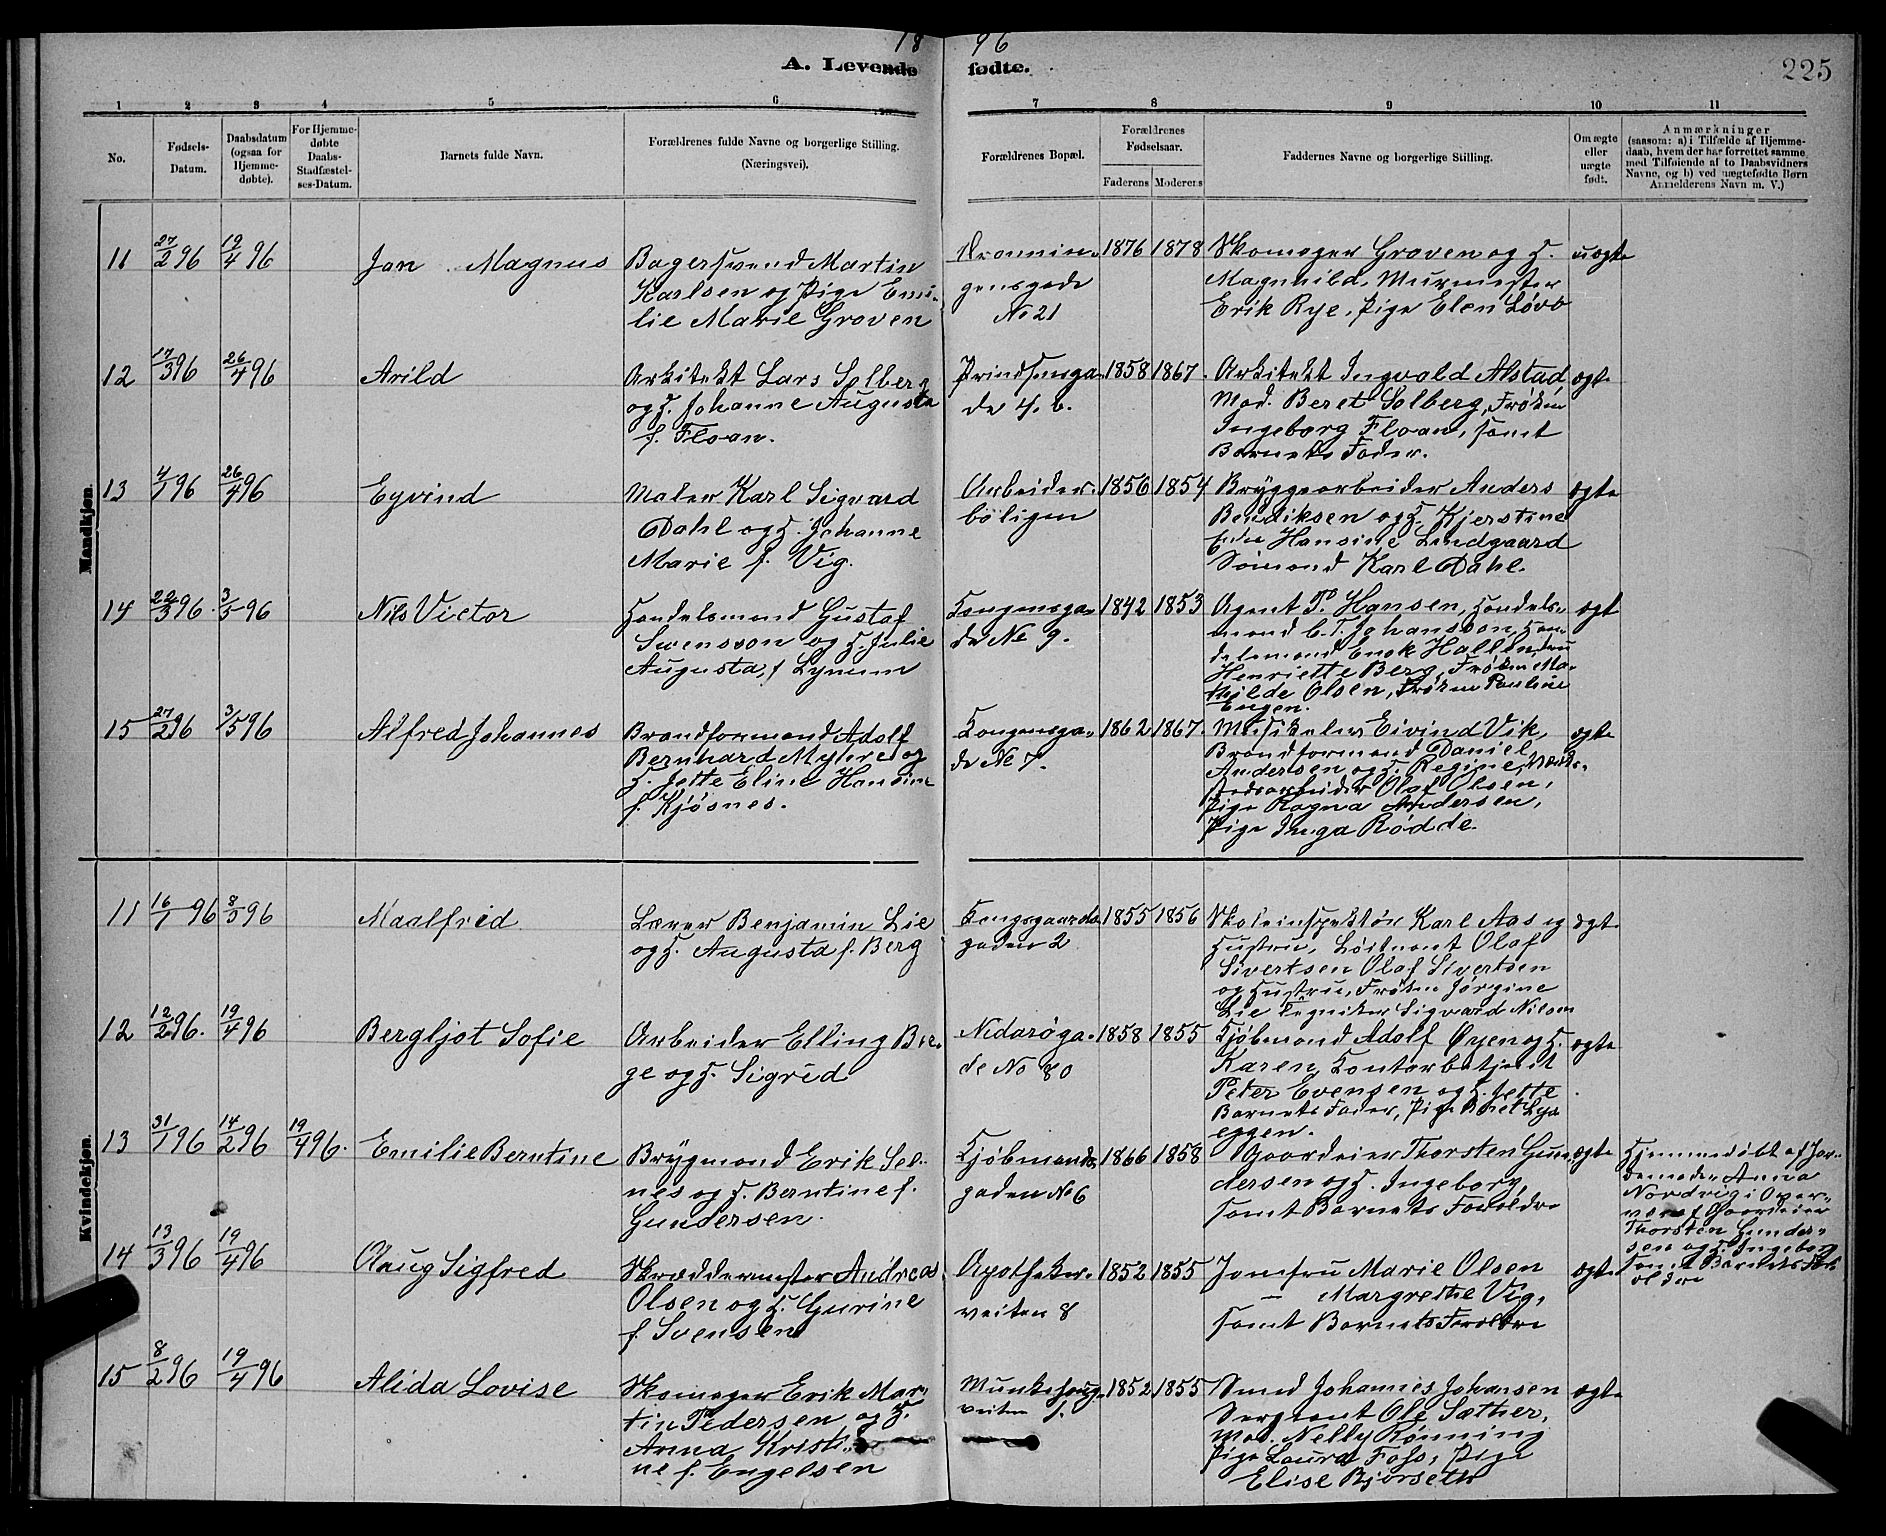 18 96
A. Levende fødte.
225
1 2 3 4 5 6 7 8 9 10 11
No.
Fødsels-Datum.
Daabsdatum (ogsaa for Hjemme-døbte).
For Hjemme-døbte Daabs-Stadfæstel-ses-Datum.
Barnets fulde Navn.
Forældrenes fulde Navne og borgerlige Stilling. (Næringsvei).
Forældrenes Bopæl.
Forældrenes Fødselsaar.
Faderens Moderens
Faddernes Navne og borgerlige Stilling.
Om ægte eller uægte født.
Anmærkninger
(saasom: a) i Tilfælde af Hjemme-
daab, hvem der har forrettet samme,
med Tilføiende af to Daabsvidners
Navne, og b) ved uægtefødte Børn
Anmelderens Navn m. V.)
Mandkjøn.
11 27/2 96 19/4 96 Jan Magnus Bagersvend Martin Dronnin- 1876 1878 Skomager Groven og H. uægte
Karlsen og Pige Emi- gensgade Magnhild, Murmester
lie Marie Groven No 21 Erik Rye, Pige Elen Løvø
12 17/3 96 26/4 96 Arild Arkitekt Lars Solberg Prindsensga- 1858 1867 Arkitekt Ingvald Alstad, ægte
og H. Johanne Augusta de 4.b. Mad. Beret Solberg, Frøken
f. Floan. Ingeborg Floan, samt
Barnets Fader.
13 4/1 96 26/4 96 Eyvind Maler Karl Sigvard Arbeider- 1856 1854 Bryggearbeider Anders ægte
Dahl og H. Johanne boligen Bendiksen og H. Kjerstine
Marie f. Vig. Hansine Lindgaard
Sømand Karl Dahl.
14 22/3 96 3/5 96 Nils Victor Handelsmand Gustaf Kongensga- 1842 1853 Agent P. Hansen, Handels- ægte
Svensson og H. Julie de No 9. mand C. T. Johansson, Han-
Augusta, f Lynum delsmand Enok Hallin, Fru
Henriette Berg, Frøken Ma-
thilde Olsen, Frøken Pauline
Engen.
15 27/2 96 3/5 96 Alfred Johannes Brandformand Adolf Kongensga- 1862 1867 Musikeler Eivind Vik, ægte
Bernhard Myhre og de No 7. Brandformand Daniel
H. Jette Eline Hansine Andersen og H. Regine, Værk-
f. Kjøsnes. stedsarbeider Olaf Olsen,
Pige Ragna Andersen,
Pige Inga Rødde.
Kvindekjøn.
11 16/1 96 8/3 96 Maalfrid Lærer Benjamin Lie Kongsgaards- 1855 1856 Skoleinspektør Karl Aas og ægte
og H. Augusta f. Berg gaden 2 Hustru, Løitnant Olaf
Sivertsen Olaf Sivertsen
og Hustru, Frøken Jørgine
Lie Tegniker Sigvard Nilsen
12 12/2 96. 19/4 96 Bergljot Sofie Arbeider Elling Bre- Nidarøga- 1858 1855 Kjøbmand Adolf Øyen og H. ægte
ge og H. Sigrid de No 80 Karen, Kontorbetjent
Peter Evensen og H. Jette
Barnets Fader, Pige Beret Lya
eggen.
13 31/1 96 14/2 96 19/4 96. Emilie Berntine Brygmand Erik Sel- Kjøbmands- 1866 1858 Gaardeier Thorsten Gun- ægte Hjemmedøbt af Jor-
nes og H. Berntine f. gaden No 6 dersen og H. Ingeborg, demoder Anna
Gundersen. samt Barnets Forældre Nordvig i Over-
været Gaardeier
Thorsten Gunder-
sen og H. Ingeborg
samt Barnets For-
ældre
14 13/3 96 19/4 96 Aaug Sigfred Skræddermester Andreas Apotheker- 1852 1855 Jomfru Marie Olsen ægte
Olsen og H. Gurine veiten 8 – Margrethe Vig,
f. Svensen samt Barnets Forældre
15 8/2 96 19/4 96 Alida Lovise Skomager Erik Mar- Munkehaug- 1852 1855 Smed Johannes Johansen ægte
tin Pedersen og H. veiten 1. Sergeant Ole Sæther,
Anna Kristi- Mad. Nelly Rønning
ne f. Engelsen Pige Laura Foss, Pige
Elise Bjørseth